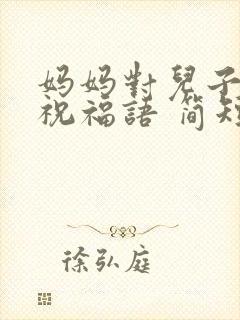 妈妈對兒子
祝福語 简短
徐弘庭